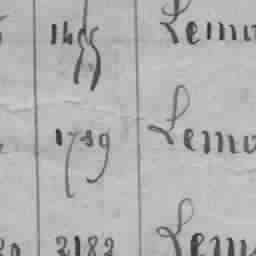 1455 Lemo
1789 Lemo
2182 Lem